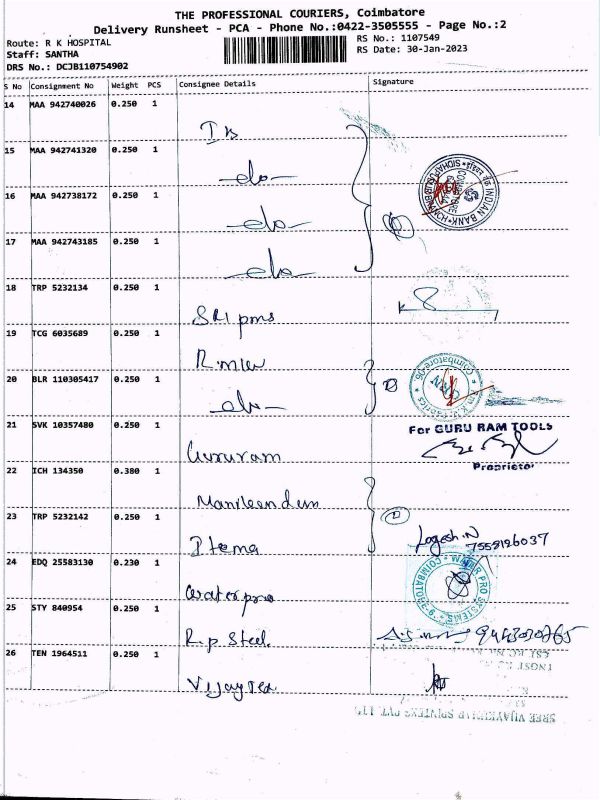 THE PROFESSIONAL COURIERS, Coimbatore
Delivery Runsheet - PCA - Phone No.:0422-3505555 - Page No.:2
Route: R K HOSPITAL
Staff: SANTHA
DRS No.: DCJB110754902
RS No.: 1107549
RS Date: 30-Jan-2023
S No Consignment No Weight PCS Consignee Details Signature
14 MAA 942740026 0.250 1
15 MAA 942741320 0.250 1 -do-
16 MAA 942738172 0.250 1 -do-
17 MAA 942743185 0.250 1 -do-
INDIAN BANK
18 TRP 5232134 0.250 1 SRI pms
19 TCG 6035689 0.250 1
20 BLR 110305417 0.250 1 -do-
Coimbatore-06
21 SVK 10357480 0.250 1 Gururam
For GURU RAM TOOLS
Proprietor
22 ICH 134350 0.380 1
23 TRP 5232142 0.250 1
Logesh.N
7558126037
24 EDQ 25583130 0.230 1 Water pro
WATER PRO SYSTEMS
25 STY 840954 0.250 1 R.p Steel
26 TEN 1964511 0.250 1 Vijay Tex